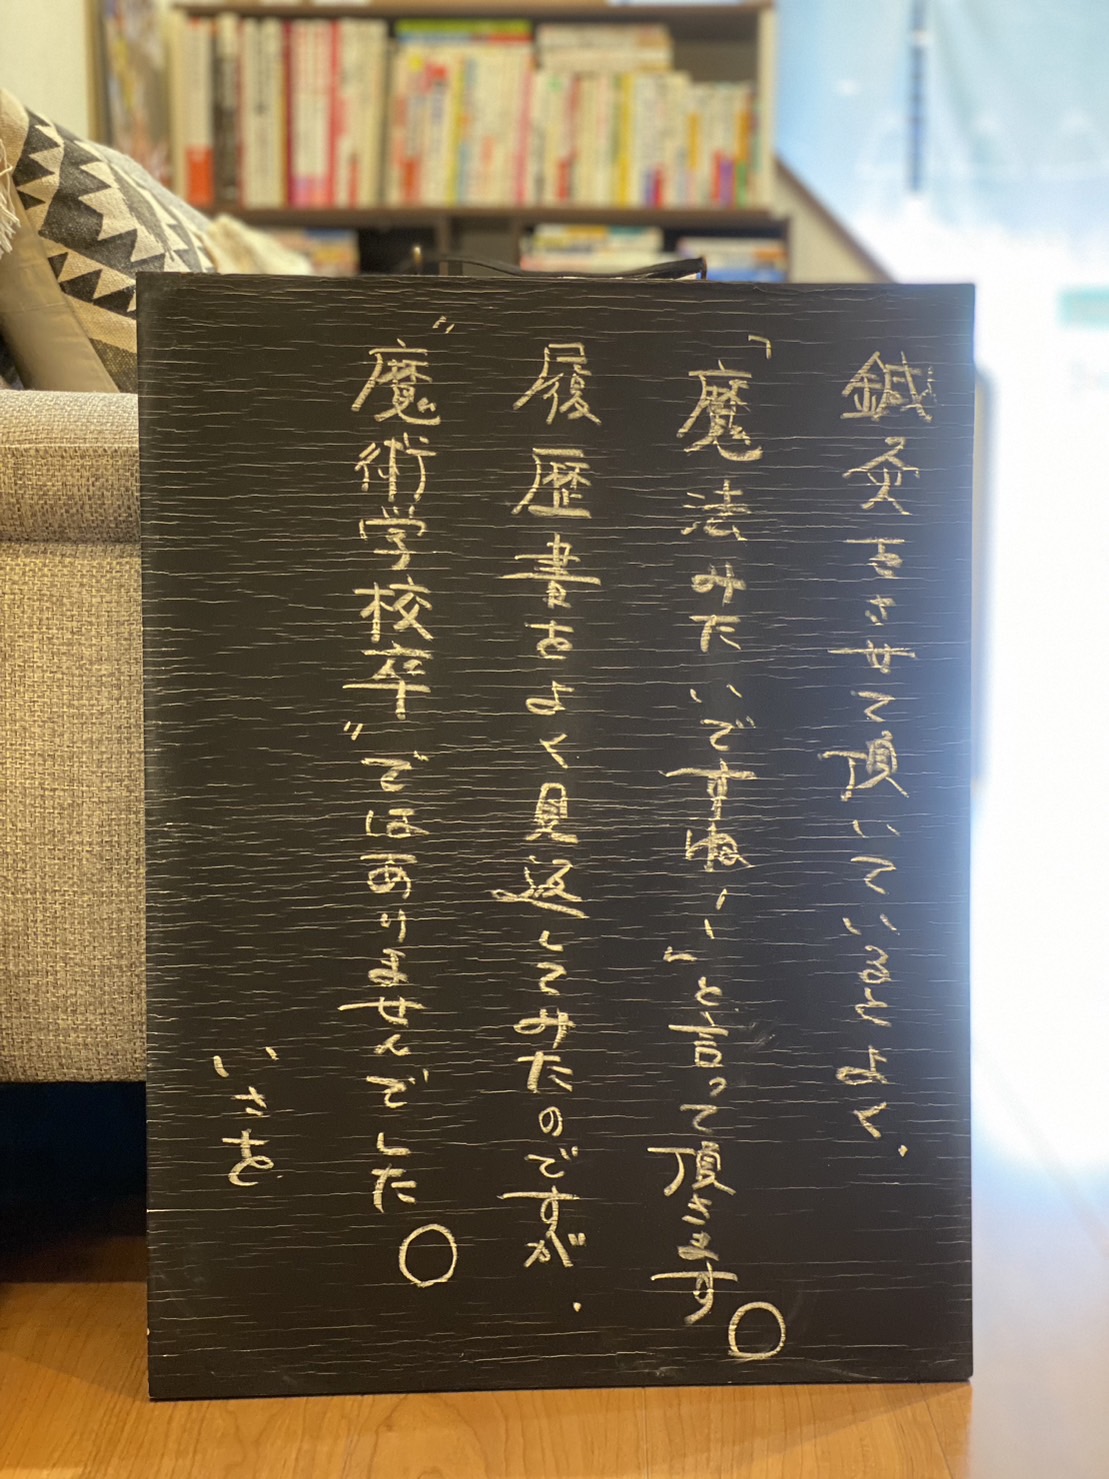 鍼灸をさせて頂いているとよく、
「魔法みたいですねーー」と言って頂きます。
履歴書をよく見返してみたのですが、
〝魔術学校卒〟ではありませんでした。
いさを